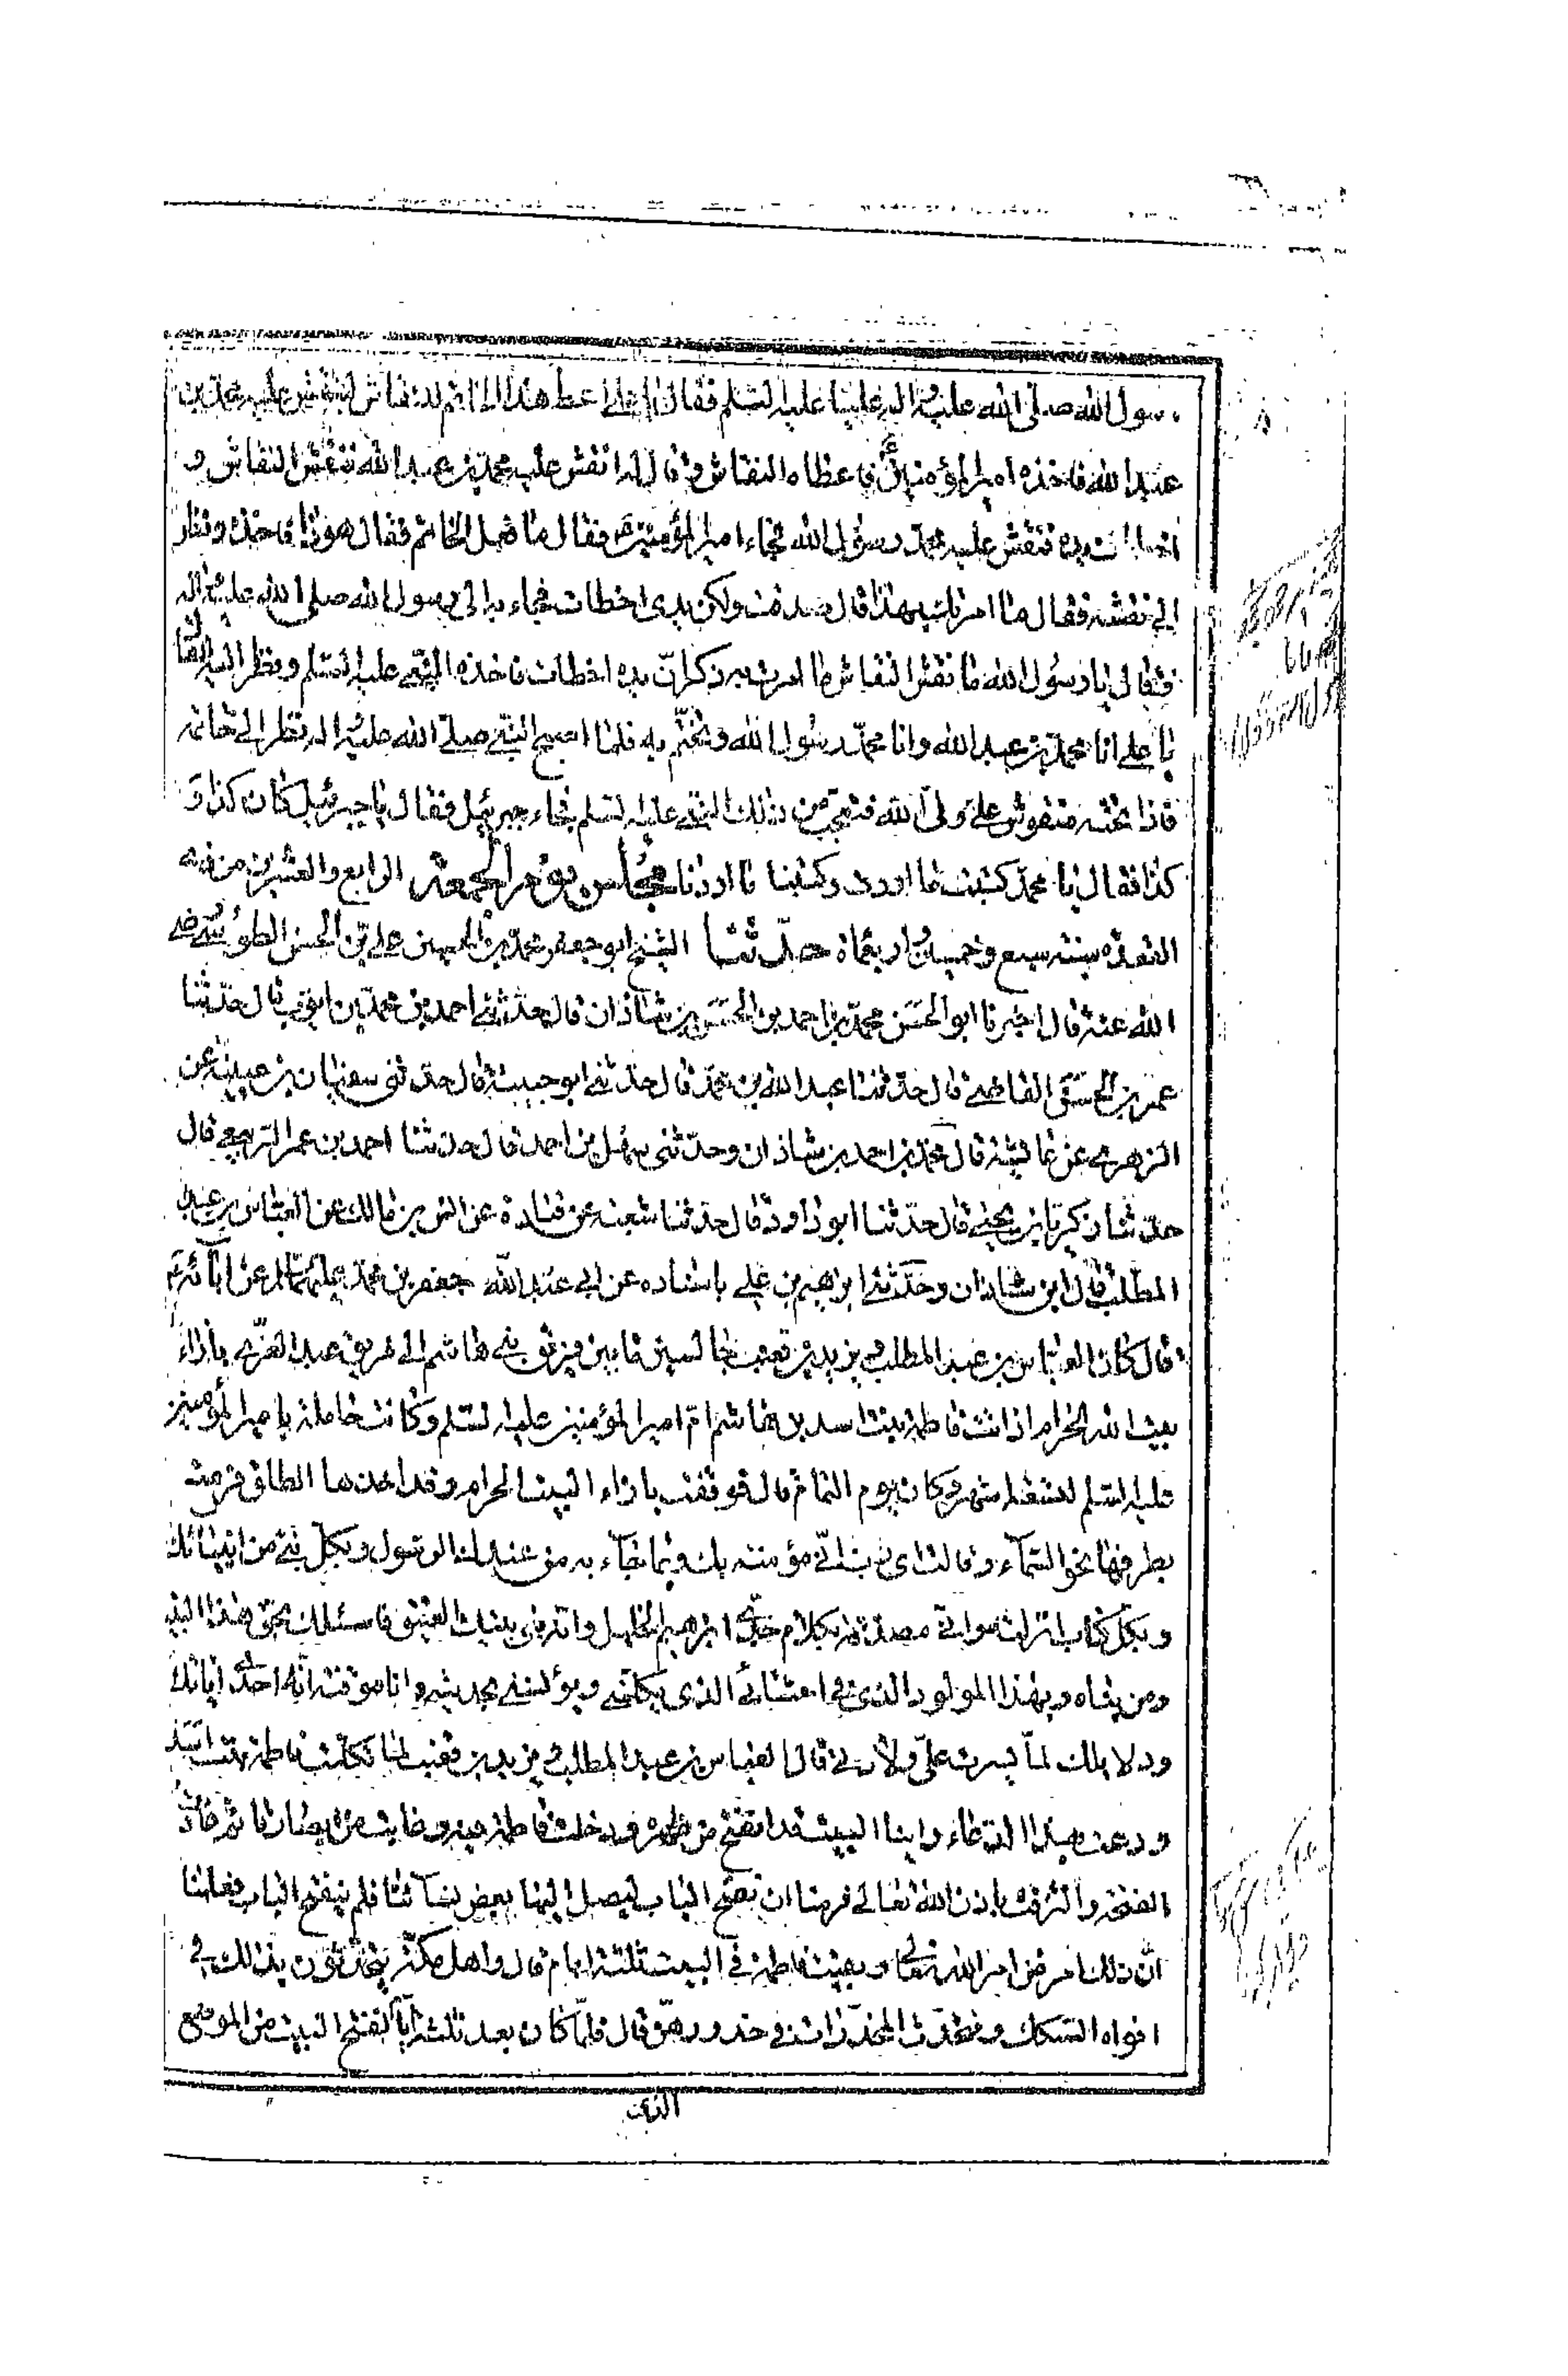 رسول الله صلى الله عليه واله عليا عليه السلم فقال يا على اعط هذا الخاتم للنقاش لينقش عليه محمد بن
عبد الله فاخذه امير المؤمنين فاعطاه النقاش وقال له انقش عليه محمد بن عبد الله فنقش النقاش و
اخطات يده فنقش عليه محمد رسول الله فجاء امير المؤمنين فقال ما فعل الخاتم فقال هو ذا فاخذه ونظر
الى نقشه فقال ما امرتك بهذا قال صدقت ولكن يدى اخطات فجاء به الى رسول الله صلى الله عليه واله
فقال يا رسول الله ما نقش النقاش ما امرت به ذكر ان يده اخطات فاخذه النبى عليه السلم ونظر اليه فقال
يا على انا محمد بن عبد الله وانا محمد رسول الله وتختم به فلما اصبح النبى صلى الله عليه واله نظر الى خاتمه
فاذا تحته منقوش على ولى الله فتعجب من ذلك النبى عليه السلم فجاء جبرئيل فقال يا جبرئيل كان كذا و
كذا فقال يا محمد كتبت ما اردت وكتبنا ما اردنا مجلس يوم الجمعة الرابع والعشرين من ذى
القعدة سنة سبع وخمسين واربعمائة حدثنا الشيخ ابو جعفر محمد بن الحسن بن على بن الحسن الطوسى رضى
الله عنه قال اخبرنا ابو الحسن محمد بن احمد بن الحسن بن شاذان قال حدثنى احمد بن محمد بن ايوب قال حدثنا
عمر بن الحسن القاضى قال حدثنا عبد الله بن محمد قال حدثنى ابو حبيبة قال حدثنى سفيان بن عيينة عن
الزهرى عن عائشة قال محمد بن احمد بن شاذان وحدثنى سهل بن احمد قال حدثنا احمد بن عمر الربيعى قال
حدثنا زكريا بن يحيى قال حدثنا ابو داود قال حدثنا شعبة عن قتادة عن انس بن مالك عن العباس بن عبد
المطلب قال ابن شاذان وحدثنى ابراهيم بن على باسناده عن ابى عبد الله جعفر بن محمد عليهما السلم عن آبائه
قال كان العباس بن عبد المطلب ويزيد بن قعنب جالسين ما بين فريق بنى هاشم الى فريق عبد العزى بازاء
بيت الله الحرام اذ اتت فاطمة بنت اسد بن هاشم ام امير المؤمنين عليه السلم وكانت حاملة بامير المؤمنين
عليه السلم لتسعة اشهر وكان يوم التمام قال فوقفت بازاء البيت الحرام وقد اخذها الطلق فرمت
بطرفها نحو السماء وقالت اى رب انى مؤمنة بك وبما جاء به من عندك الرسول وبكل نبى من انبيائك
وبكل كتاب انزلته وانى مصدقة بكلام جدى ابراهيم الخليل وانه بنى بيتك العتيق فاسئلك بحق هذا البيت
ومن بناه وبهذا المولود الذى فى احشائى الذى يكلمنى ويؤنسنى بحديثه وانا موقنة انه احدى آياتك
ودلائلك لما يسرت على ولادتى قال العباس بن عبد المطلب ويزيد بن قعنب لما تكلمت فاطمة بنت اسد
ودعت بهذا الدعاء راينا البيت قد انفتح من ظهره ودخلت فاطمة فيه وغابت عن ابصارنا ثم عادت
الفتحة والتزقت باذن الله تعالى فرمنا ان نفتح الباب ليصل اليها بعض نسائنا فلم ينفتح الباب فعلمنا
ان ذلك امر من امر الله تعالى وبقيت فاطمة فى البيت ثلثة ايام قال واهل مكة يتحدثون بذلك فى
افواه السكك وتتحدث المخدرات فى خدورهن قال فلما كان بعد ثلثة ايام انفتح البيت من الموضع
الذى